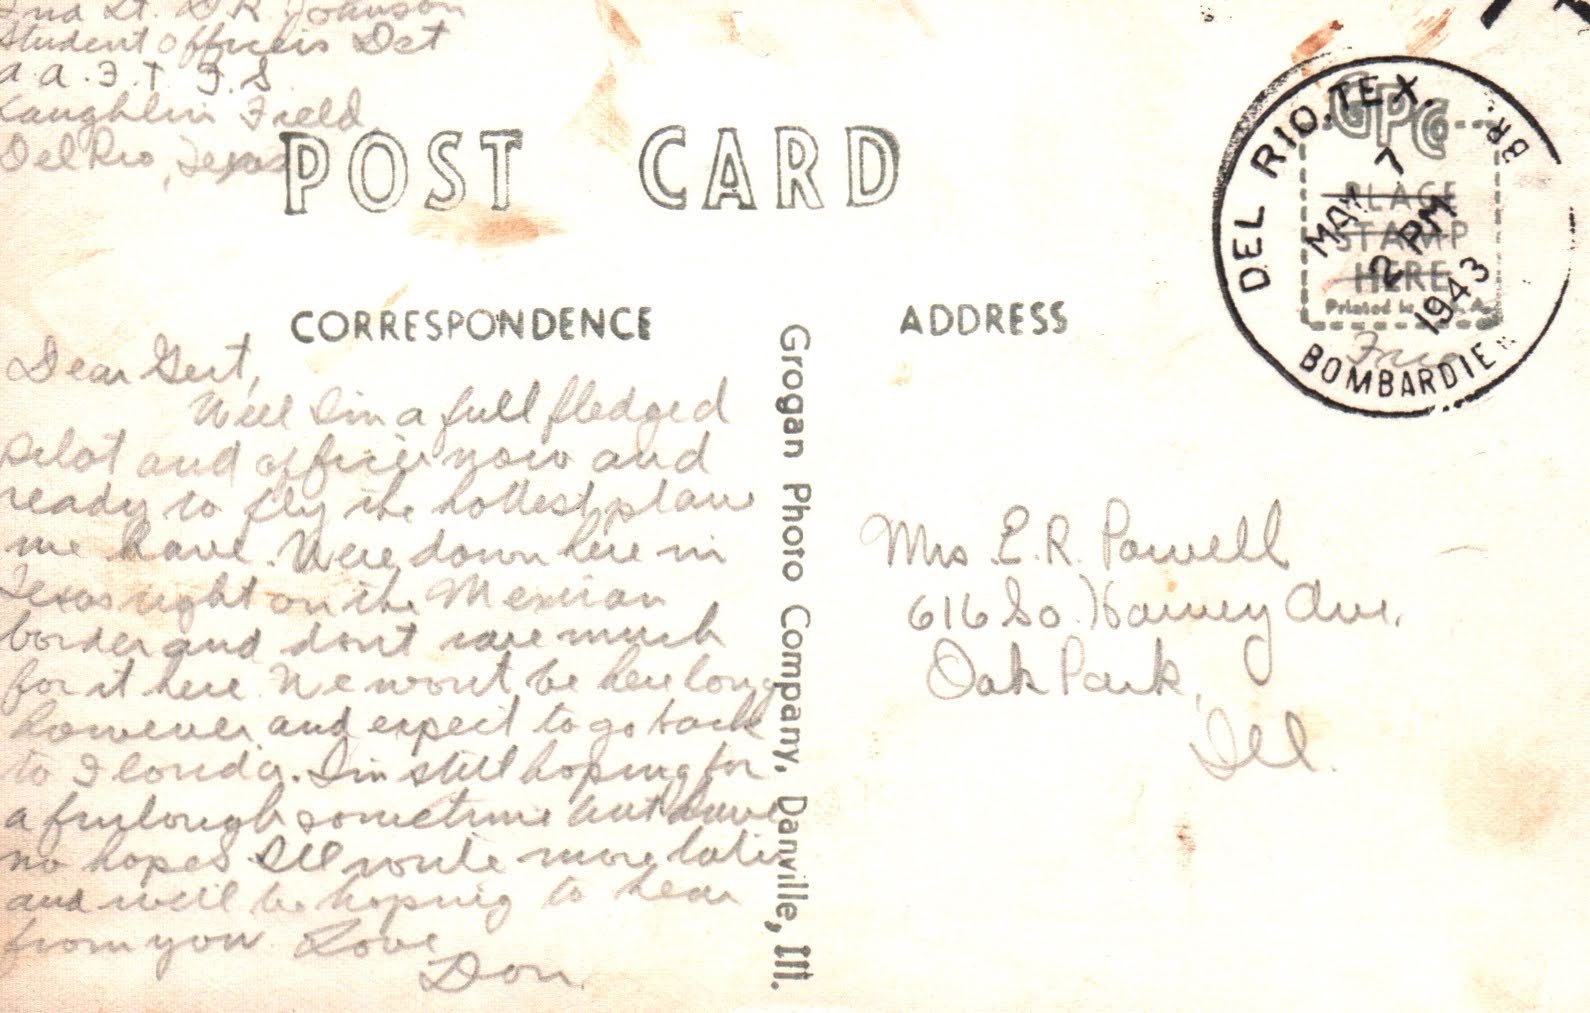 2nd Lt. D.R. Johnson
Student Officers Det
A.A.F.T.F.S
Laughlin Field
Del Rio, Texas
POST CARD
DEL RIO, TEX.
BR.
MAY 7
2 PM
1943
BOMBARDIER
GPC
PLACE
STAMP
HERE
Printed in U.S.A.
Free
CORRESPONDENCE
ADDRESS
Dear Gert,
Well I'm a full fledged
pilot and officer now and
ready to fly the hottest plane
we have. We're down here in
Texas right on the Mexican
border and don't care much
for it here. We won't be here long
however and expect to go back
to Florida. I'm still hoping for
a furlough sometime but have
no hopes. I'll write more later
and will be hoping to hear
from you. Love
Don.
Grogan Photo Company, Danville, Ill.
Mrs E.R. Powell
616 So. Harvey Ave.
Oak Park,
Ill.